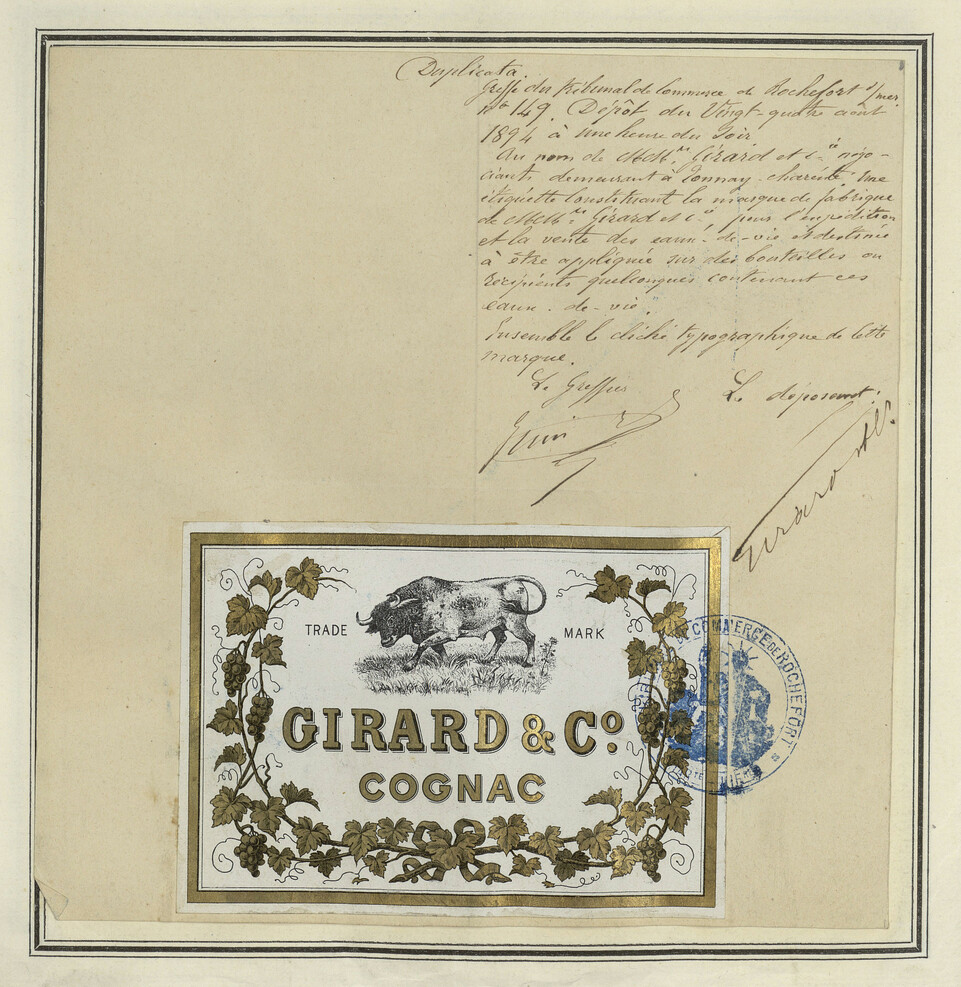 Duplicata.
Greffe du tribunal de Commerce de Rochefort s/mer
No 149. Dépôt du Vingt-quatre août
1894 à une heure du Soir
Au nom de MM.rs Girard et Cie négo-
ciants demeurant à Tonnay-charente "Une
étiquette Constituant la marque de fabrique
de MM.rs Girard et Cie pour l'expédition
et la vente des eaux-de-vie et destinée
à être appliquée sur des bouteilles ou
récipients quelconques contenant ces
eaux-de-vie."
Ensemble le cliché typographique de Cette
marque.
Le Greffier
Le déposant:
Girard & Co
TRADE MARK
GIRARD & Co.
COGNAC
COMMERCE DE ROCHEFORT